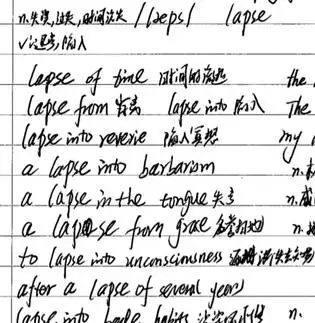 n.失误,过失,时间流失 /læps/ lapse
v.退步,陷入
lapse of time 时间的流逝 the
lapse from 背离 lapse into 陷入 The
lapse into reverie 陷入冥想 my
a lapse into barbarism n.
a lapse in the tongue 失言 n.
a lapse from grace 名誉扫地 n.
to lapse into unconsciousness
after a lapse of several years
lapse into bade habits n.